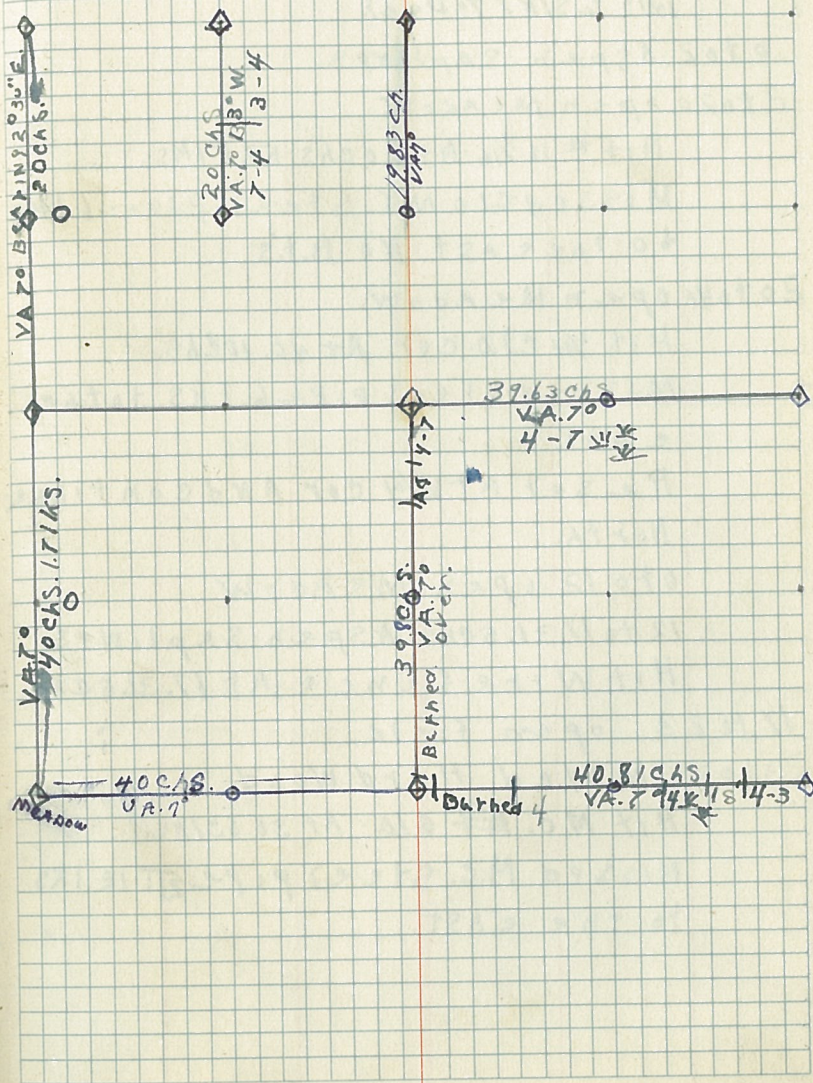 VA 7° BEARING 2° 30" E.
20 Chs.
20 Chs
VA. 7° B 3° W.
7-4 3-4
19.83 Ch.
VA 7°
39.63 Chs
V.A. 7°
4-7
4-7
VA 7°
40 Chs. 1.71 lks.
39.8 Chs.
VA. 7°
Burned over.
40 Chs.
VA. 7°
MEADOW
Burned 4
40.81 Chs
VA. 7
4-3